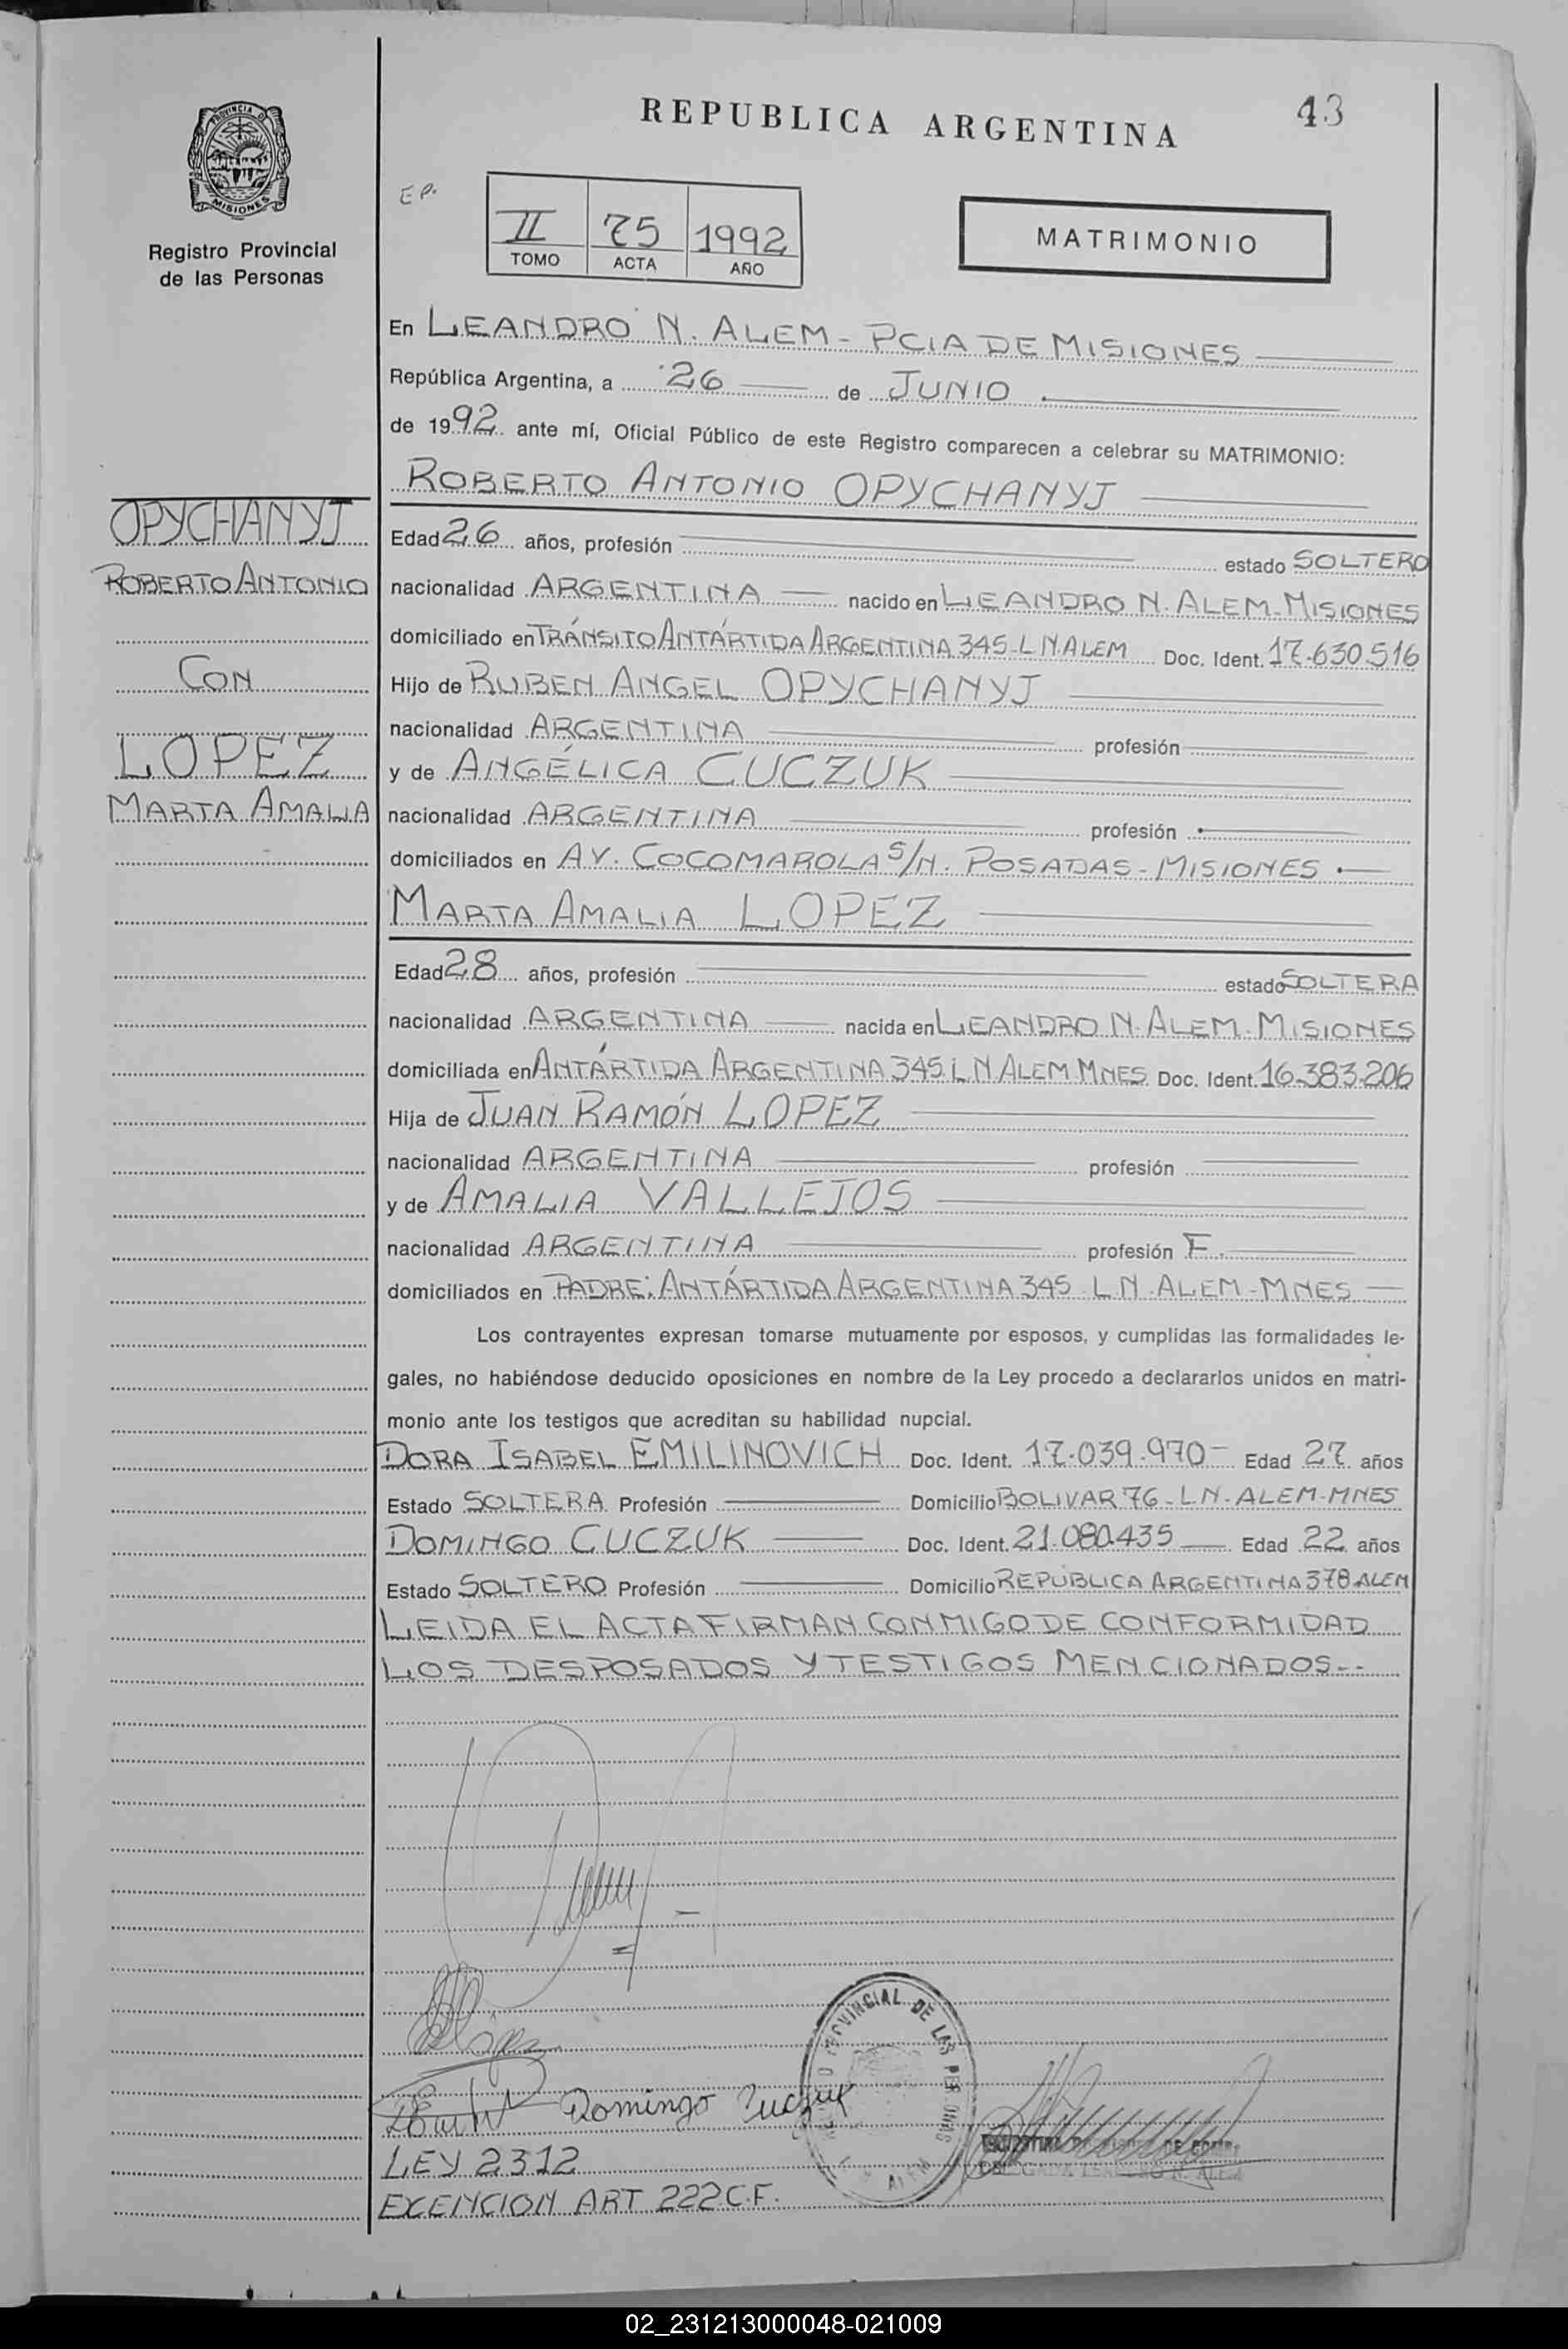 43
REPUBLICA ARGENTINA
PROVINCIA D
MISIONES
Registro Provincial
de las Personas
E P.
II 75 1992
TOMO ACTA AÑO
MATRIMONIO
En LEANDRO N. ALEM - PCIA DE MISIONES
República Argentina, a 26 de JUNIO
de 1992 ante mí, Oficial Público de este Registro comparecen a celebrar su MATRIMONIO:
ROBERTO ANTONIO OPYCHANYJ
OPYCHANYJ
ROBERTO ANTONIO
CON
LOPEZ
MARTA AMALIA
Edad 26 años, profesión estado SOLTERO
nacionalidad ARGENTINA nacido en LEANDRO N. ALEM-MISIONES
domiciliado en TRÁNSITO ANTÁRTIDA ARGENTINA 345-L N ALEM Doc. Ident. 17.630.516
Hijo de RUBEN ANGEL OPYCHANYJ
nacionalidad ARGENTINA profesión
y de ANGÉLICA CUCZUK
nacionalidad ARGENTINA profesión
domiciliados en AV. COCOMAROLA S/N. POSADAS - MISIONES
MARTA AMALIA LOPEZ
Edad 28 años, profesión estado SOLTERA
nacionalidad ARGENTINA nacida en LEANDRO N. ALEM-MISIONES
domiciliada en ANTÁRTIDA ARGENTINA 345 L N ALEM MNES Doc. Ident. 16.383.206
Hija de JUAN RAMÓN LOPEZ
nacionalidad ARGENTINA profesión
y de AMALIA VALLEJOS
nacionalidad ARGENTINA profesión F.
domiciliados en PADRE: ANTÁRTIDA ARGENTINA 345 L N. ALEM-MNES
Los contrayentes expresan tomarse mutuamente por esposos, y cumplidas las formalidades le-
gales, no habiéndose deducido oposiciones en nombre de la Ley procedo a declararlos unidos en matri-
monio ante los testigos que acreditan su habilidad nupcial.
DORA ISABEL EMILINOVICH Doc. Ident. 17.039.970 Edad 27 años
Estado SOLTERA Profesión Domicilio BOLIVAR 76-L N-ALEM-MNES
DOMINGO CUCZUK Doc. Ident. 21.080.435 Edad 22 años
Estado SOLTERO Profesión Domicilio REPUBLICA ARGENTINA 378 ALEM
LEIDA EL ACTA FIRMAN CONMIGO DE CONFORMIDAD
LOS DESPOSADOS Y TESTIGOS MENCIONADOS--
López
Domingo Cuczuk
PROVINCIAL DE LAS PERSONAS
ALEM
LEY 2312
EXENCION ART 222 C.F.
02_231213000048-021009